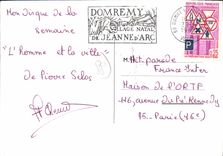 Mon disque de la
semaine
"L'Homme et la ville"
De Pierre Selos
DOMREMY
VILLAGE NATAL
DE JEANNE D'ARC
Hit parade
France Inter
Maison de l'ORTF
116, avenue du Pdt Kennedy
75 - Paris (16e)